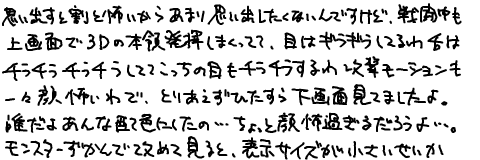 思い出すと割と怖いからあまり思い出したくないんですけど、戦闘中も
上画面で3Dの本領発揮しまくってて、目はギラギラしてるわ舌は
チラチラチラチラしててこっちの目もチラチラするわ攻撃モーションも
一々顔怖いわで、とりあえずひたすら下画面見てましたよ。
誰だよあんな配色にしたの…ちょっと顔怖過ぎるだろうよ…。
モンスターずかんで改めて見ると、表示サイズが小さいせいか